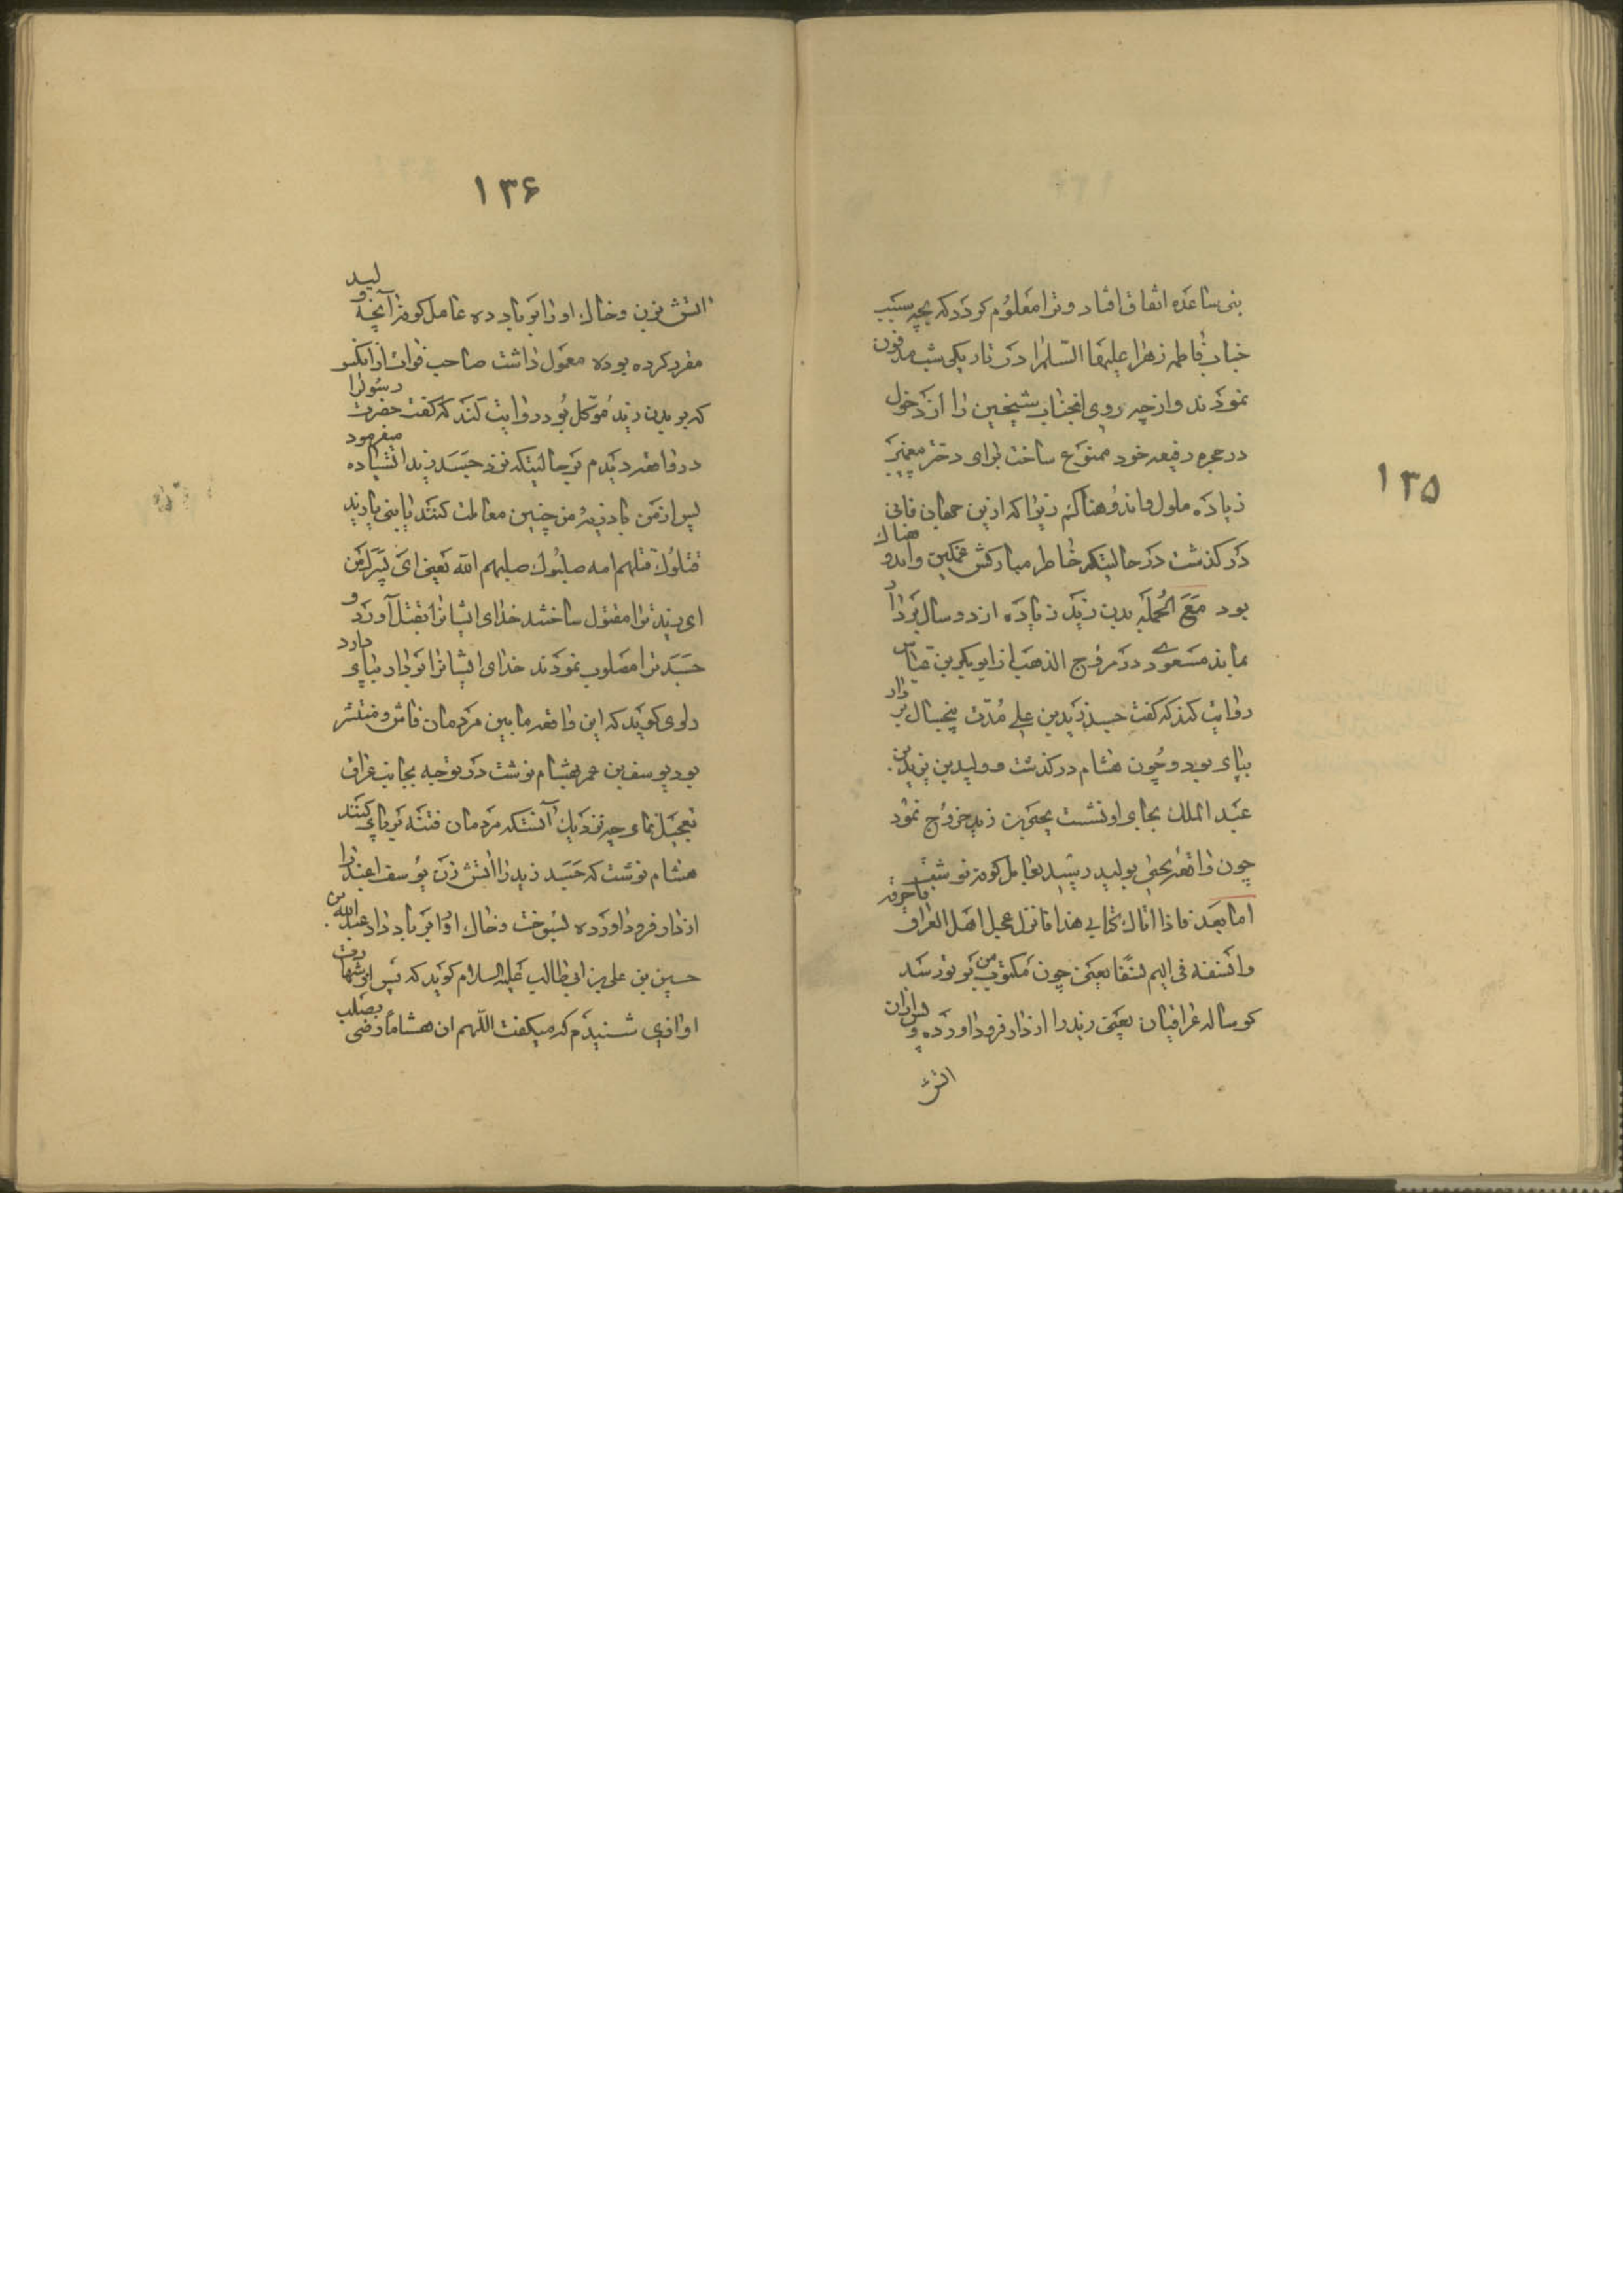 ۱۳۵
بنی ساعده اتفاق افتاد و ترا معلوم کردد که بچه سبب
جناب فاطمه زهرا علیها السّلمرا در تاریکی شب مدفون
نمودند و از چه روی انجناب شیخین را از دخول
در حجره رفیعه خود ممنوع ساخت برای دختر پیغمبر
زیاده ملول و اندوهناکم زیرا که ازین جهان فانی
در کذشت در حالیتکه خاطر مبارکش غمکین و اندوهناك
بود مع الجمله بدن زید زیاده از دو سال بر دار
بماند مسعودی در مروج الذهب از ابو بکر بن عیاش
روایت کند که کفت جسد زید بن علی مدّت پنجسال بر دار
بپای بود و چون هشام در کذشت و ولید بن یزید بن
عبد الملك بجای او نشست یحیی بن زید خروج نمود
چون واقعه یحیی بولید رسید بعامل کوفه نوشت
اما بعد فاذا اتاك کتابی هذا فانزل عجل اهل العراق فاحرقه
و انسفه فی الیم نسفا یعنی چون مکتوب من بر تو رسد
کوساله عراقیان یعنی زید را از دار فرود اورده و پس ازان
اتش
۱۳۶
اتش بزن و خاك او را بر باد ده عامل کوفه آنچه ولید
مقرر کرده بوده معمول داشت صاحب فوات از انکس
که بر بدن زید موّکل بود روایت کند که کفت حضرت رسولرا
در واقعه دیدم بر حالیتکه نزد جسد زید ایستاده میفرمود
پس از من با ذریه من چنین معاملت کنند یا بنی یا زید
قتلوك قتلهم الله صلبوك صلبهم الله یعنی ای پسرك من
ای زید ترا مقتول ساختند خدای ایشانرا بقتل آورد و
جسد ترا مصلوب نمودند خدای ایشانرا بر دار بپای دارد
راوی کوید که این واقعه مابین مردمان فاش و منتشر
بود یوسف بن عمر بهشام نوشت در توجه بجانب عراق
تعجیل نمای چه نزدیك آنستکه مردمان فتنه بر پای کنند
هشام نوشت که جسد زید را اتش زن یوسف اعبدرا
از دار فرود اورده بسوخت و خاك او را بر باد داد عبد الله بن
حسین بن علی بن ابی طالب علیه السلام کوید که پس از شهادت
او از پدرم شنیدم که میکفت اللهم ان هشاماً رضی بصلب